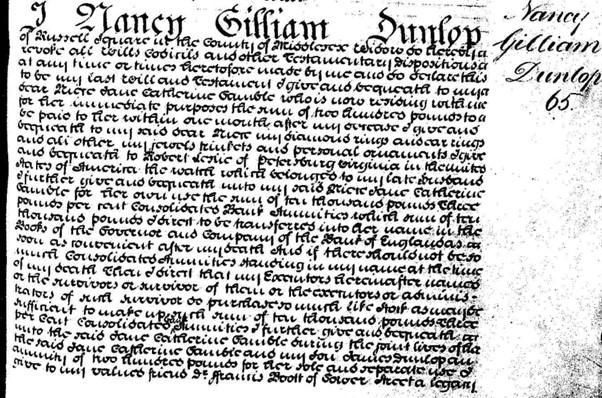 I Nancy Gilliam Dunlop
of Russell Square in the County of Middlesex Widow do hereby
revoke all Wills Codicils and other Testamentary dispositions
at any time or times heretofore made by me and do declare this
to be my last Will and Testament I give and bequeath to my
dear Niece Jane Catherine Gamble who is now residing with me
for her immediate purposes the sum of two hundred pounds to
be paid to her within one month after my decease I give and
bequeath to my said dear Niece my diamond rings and ear rings
and all other my jewels trinkets and personal ornaments I give
and bequeath to Robert Leslie of Petersburg Virginia in the United
States of America the watch which belonged to my late husband
I further give and bequeath unto my said Niece Jane Catherine
Gamble for her own use the sum of ten thousand pounds Three
pounds per cent Consolidated Bank Annuities which sum of ten
thousand pounds I direct to be transferred into her name in the
Books of the Governor and Company of the Bank of England as
soon as convenient after my death And if there should not be so
much Consolidated Annuities standing in my name at the time
of my death Then I direct that my Executors hereinafter named
or the survivors or survivor of them or the executors or adminis-
trators of such survivor do purchase so much like stock as may be
sufficient to make up such sum of ten thousand pounds Three
per Cent Consolidated Annuities I further give and bequeath
unto the said Jane Catherine Gamble during the joint lives of
the said Jane Catherine Gamble and my son James Dunlop an
annuity of two hundred pounds for her sole and separate use I
give to my valued friend Dr Francis Boott of Gower Street a legacy
Nancy
Gilliam
Dunlop
65.